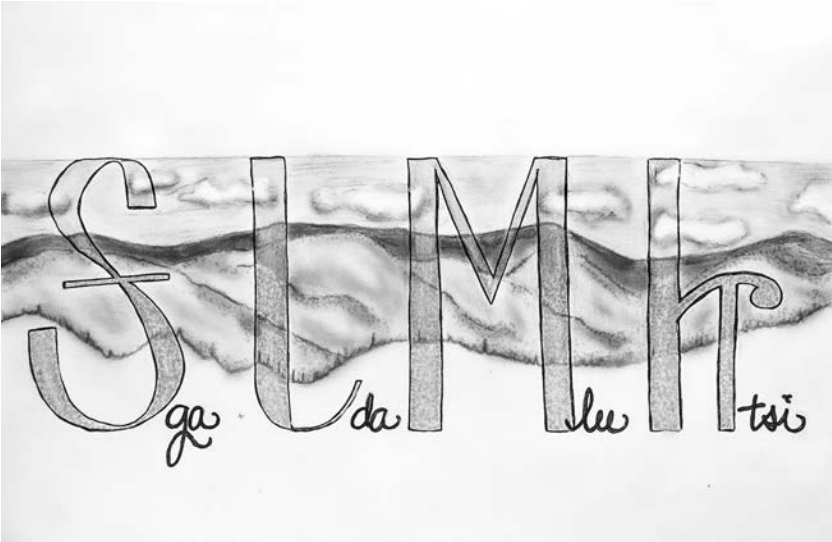 ᎦᏓᎷᏥ
ga da lu tsi